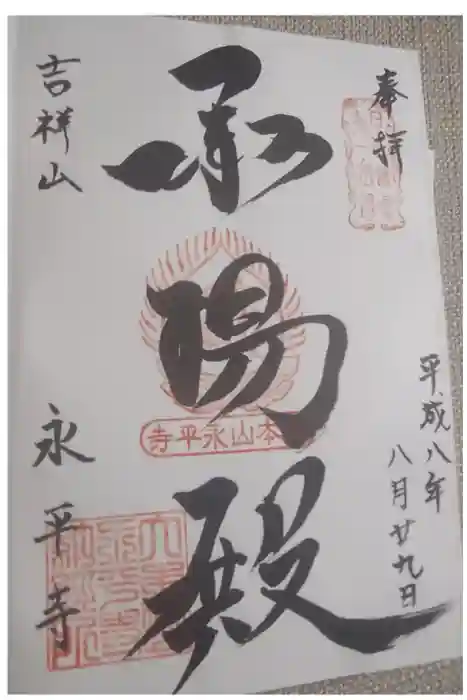 奉拝
平成八年
八月廿九日
承陽殿
本山永平寺
吉祥山
永平寺